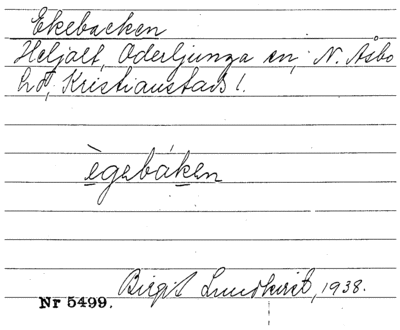 Ekebacken
Heljalt, Oderljunga sn, N. Åsbo
hd, Kristianstads l.
ègebáken
Birgit Lundkvist, 1938.
Nr 5499.